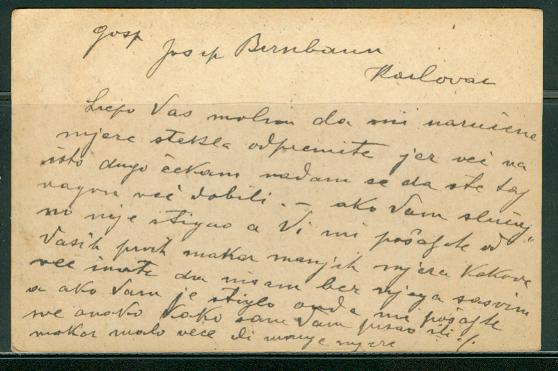 Gosp
Josip Birnbaum
Karlovac
Liepo Vas molim da mi naručene
mjere stekla odpremite jer već na
isto dugo čekam nadam se da ste taj
vagon već dobili. – ako Vam slučaj
no nije stigao a Vi mi pošaljte od
Vaših prvih makar manjih mjera kakove
već imate da nisam bez njega sasvim
a ako Vam je stiglo onda mi pošaljte
sve onako kako sam Vam pisao ili
makar malo veće ili manje mjere